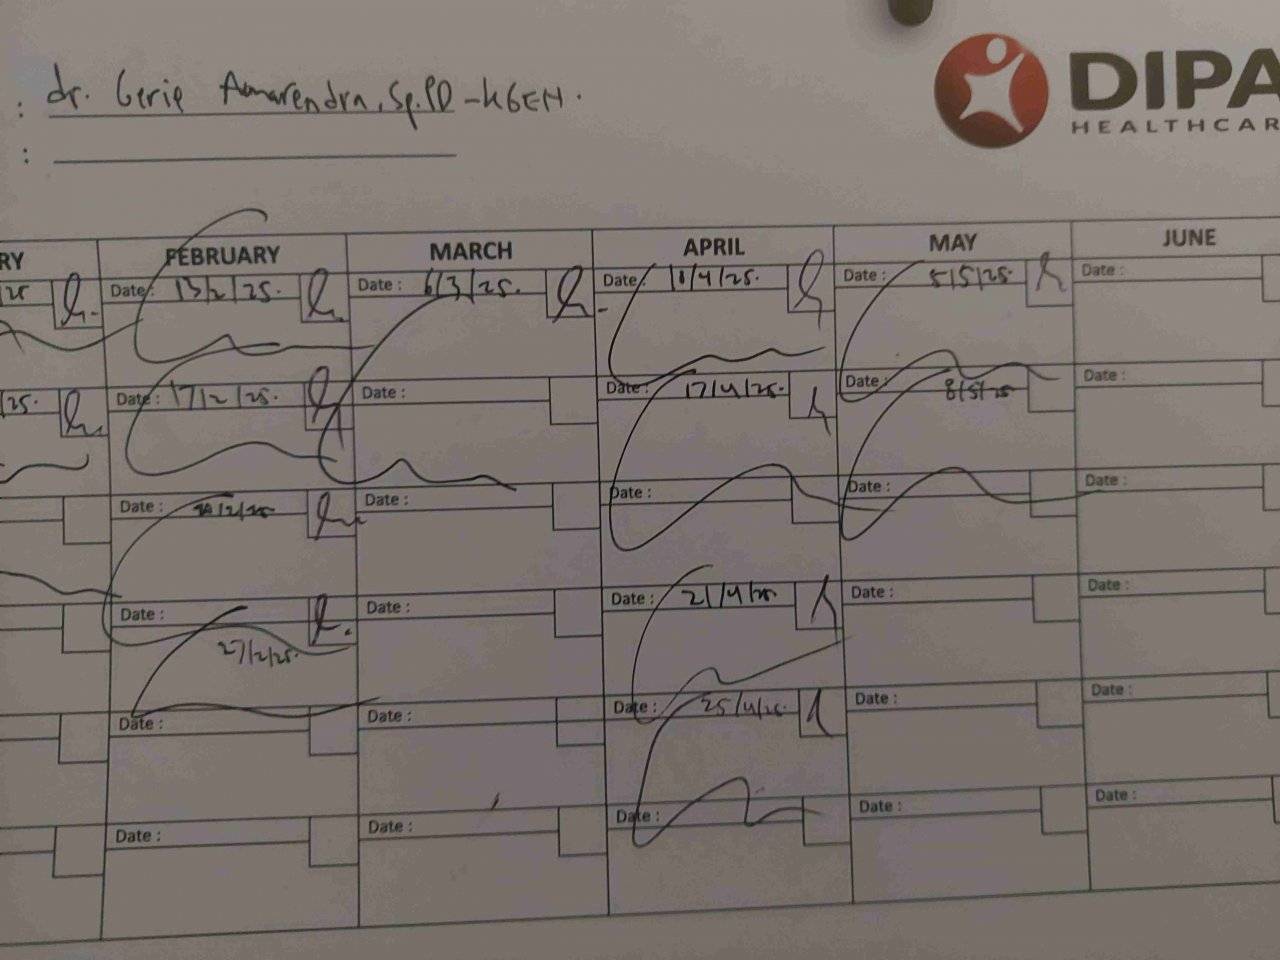 : dr. Gerie Amarendra, Sp.PD-KGEH.
DIPA
HEALTHCAR
:
RY FEBRUARY MARCH APRIL MAY JUNE
25 Date: 13/2/25. Date: 6/3/25. Date: 10/4/25. Date: 5/5/25. Date:
25. Date: 17/2/25. Date: Date: 17/4/25. Date: 8/5/25 Date:
Date: Date: Date: Date: Date:
Date: 27/2/25. Date: Date: 21/4/25. Date: Date:
Date: Date: Date: 25/4/25. Date: Date:
Date: Date: Date: Date: Date: